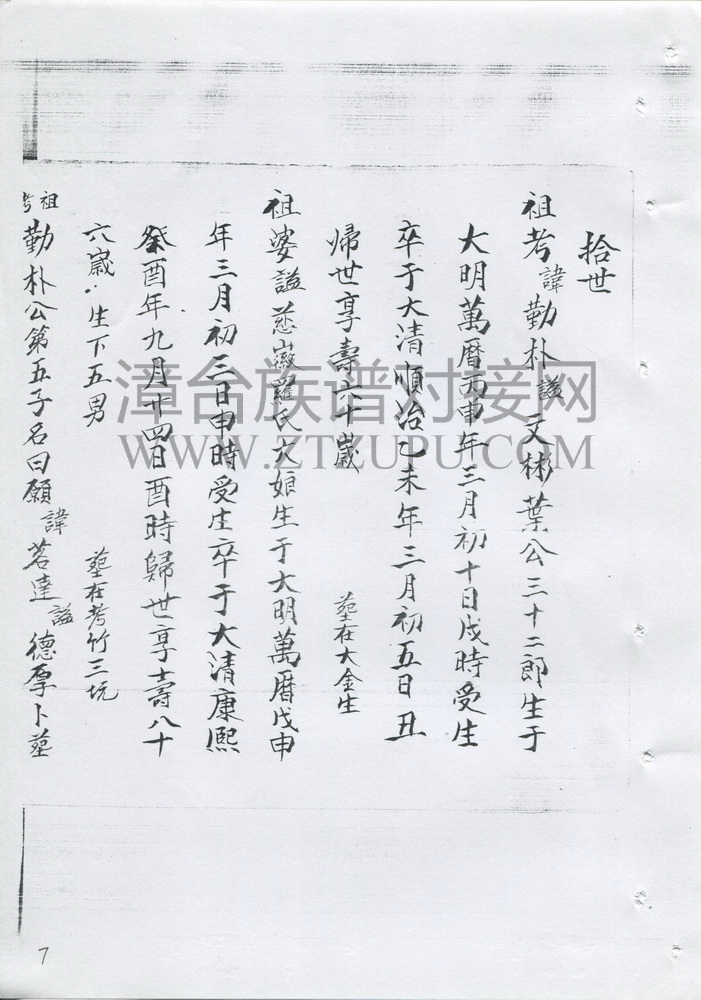 拾世
祖考諱勤朴諡文彬葉公三十二郎生于
大明萬曆丙申年三月初十日戌時受生
卒于大清順治乙未年三月初五日丑
歸世享壽六十歲 塟在大金生
祖婆諡慈嶶羅氏大娘生于大明萬曆戊申
年三月初三日申時受生卒于大清康熙
癸酉年九月十四日酉時歸世享壽八十
六歲生下五男 塟在考竹三坑
祖考勤朴公第五子名曰願諱茗達諡德厚卜塟
漳台族谱对接网
WWW.ZTZUPU.COM
7